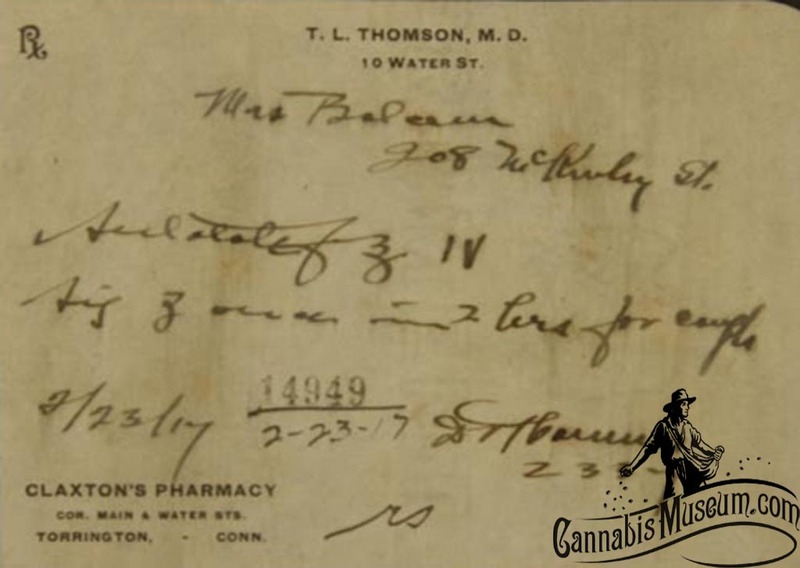 Rx
T. L. THOMSON, M. D.
10 WATER ST.
Mrs
208 McKinley St.
ʒ IV
Sig ʒ once in 2 hrs for cough
2/23/17
14949
2-23-17
Dr Thomson
23
CLAXTON'S PHARMACY
COR. MAIN & WATER STS.
TORRINGTON, - CONN.
CannabisMuseum.com